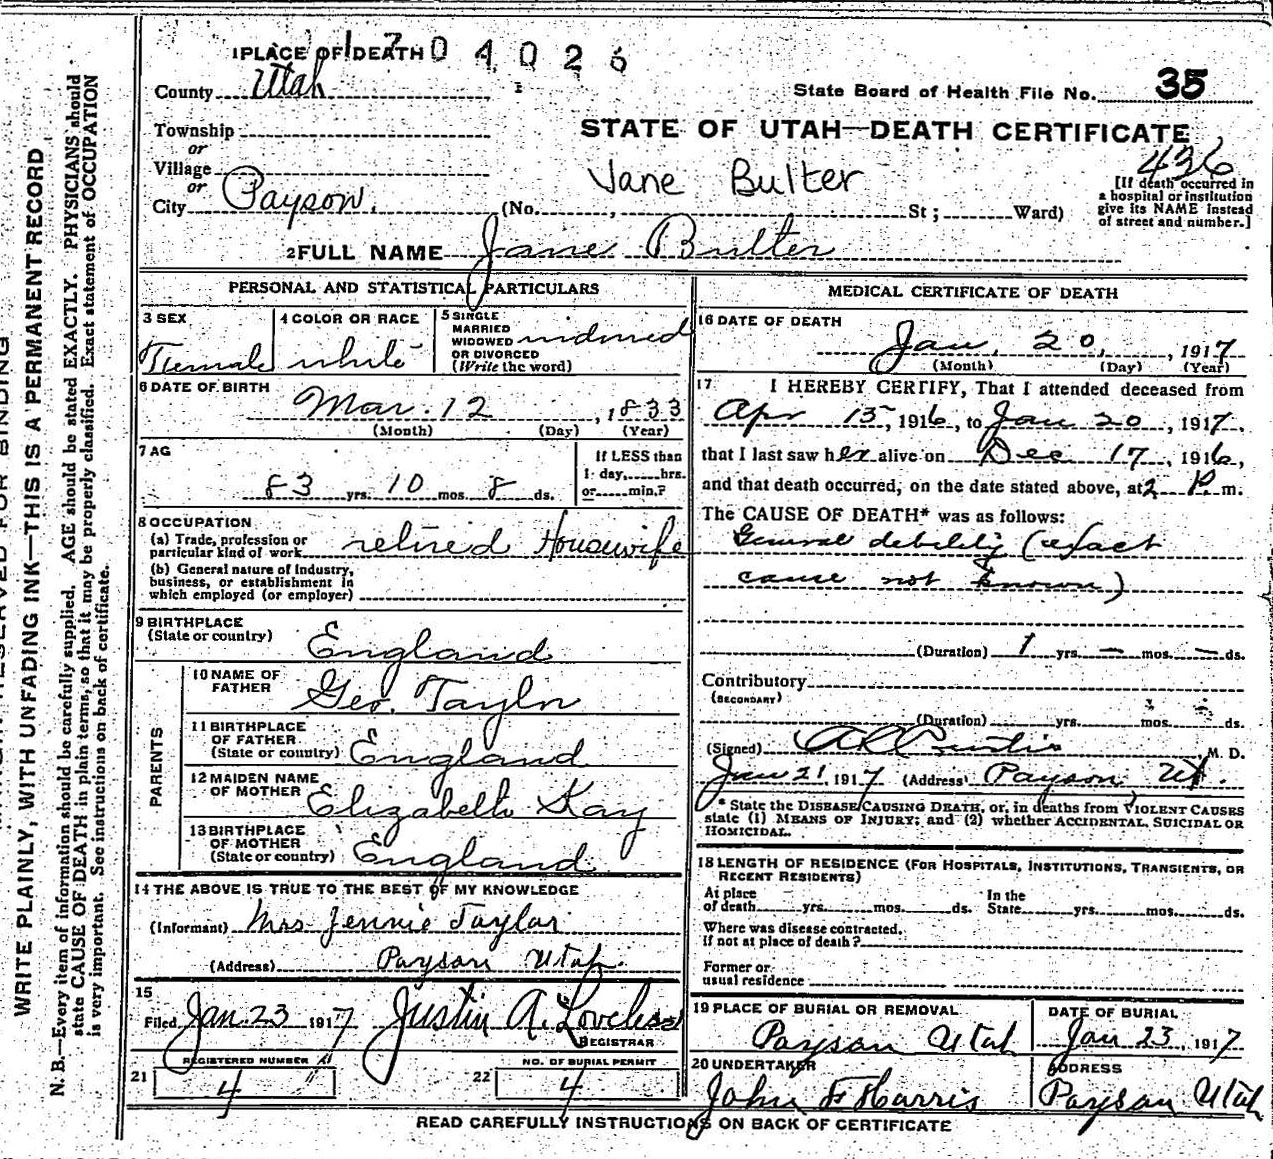 1 PLACE OF DEATH 1704026
County Utah
State Board of Health File No. 35
Township
or
STATE OF UTAH—DEATH CERTIFICATE
Village
436
or
Jane Bulter
City Payson. (No. , St; Ward)
[If death occurred in
a hospital or institution
give its NAME instead
of street and number.]
2 FULL NAME Jane Bulter
PERSONAL AND STATISTICAL PARTICULARS
3 SEX
Female
4 COLOR OR RACE
white
5 SINGLE
MARRIED
WIDOWED
OR DIVORCED
(Write the word)
widowed
6 DATE OF BIRTH
Mar. 12 , 1833
(Month) (Day) (Year)
7 AG
83 yrs. 10 mos. 8 ds.
If LESS than
1 day, hrs.
or min.?
8 OCCUPATION
(a) Trade, profession or
particular kind of work retired Housewife
(b) General nature of Industry,
business, or establishment in
which employed (or employer)
9 BIRTHPLACE
(State or country) England
10 NAME OF
FATHER Geo. Taylor
11 BIRTHPLACE
OF FATHER
(State or country) England
12 MAIDEN NAME
OF MOTHER Elizabeth Kay
13 BIRTHPLACE
OF MOTHER
(State or country) England
PARENTS
14 THE ABOVE IS TRUE TO THE BEST OF MY KNOWLEDGE
(Informant) Mrs Jennie Taylor
(Address) Payson Utah.
15
Filed Jan. 23 1917 Justin A. Loveless
REGISTRAR
REGISTERED NUMBER
21 4
NO. OF BURIAL PERMIT
22 4
MEDICAL CERTIFICATE OF DEATH
16 DATE OF DEATH
Jan. 20, , 1917
(Month) (Day) (Year)
17 I HEREBY CERTIFY, That I attended deceased from
Apr 15, 1916, to Jan 20, 1917,
that I last saw her alive on Dec 17, 1916,
and that death occurred, on the date stated above, at 2 P. m.
The CAUSE OF DEATH* was as follows:
General debility (exact
cause not known)
(Duration) 1 yrs. — mos. — ds.
Contributory
(SECONDARY)
(Duration) yrs. mos. ds.
(Signed) AL Curtis, M. D.
Jan 21, 1917 (Address) Payson, Ut.
* State the DISEASE CAUSING DEATH, or, in deaths from VIOLENT CAUSES
state (1) MEANS OF INJURY; and (2) whether ACCIDENTAL, SUICIDAL OR
HOMICIDAL.
18 LENGTH OF RESIDENCE (FOR HOSPITALS, INSTITUTIONS, TRANSIENTS, OR
RECENT RESIDENTS)
At place
of death yrs. mos. ds.
In the
State yrs. mos. ds.
Where was disease contracted,
if not at place of death?
Former or
usual residence
19 PLACE OF BURIAL OR REMOVAL
Payson Utah
DATE OF BURIAL
Jan 23, 1917
20 UNDERTAKER
John F Harris
ADDRESS
Payson Utah
READ CAREFULLY INSTRUCTIONS ON BACK OF CERTIFICATE
WRITE PLAINLY, WITH UNFADING INK—THIS IS A PERMANENT RECORD
N. B.—Every item of information should be carefully supplied. AGE should be stated EXACTLY. PHYSICIANS should
state CAUSE OF DEATH in plain terms, so that it may be properly classified. Exact statement of OCCUPATION
is very important. See instructions on back of certificate.